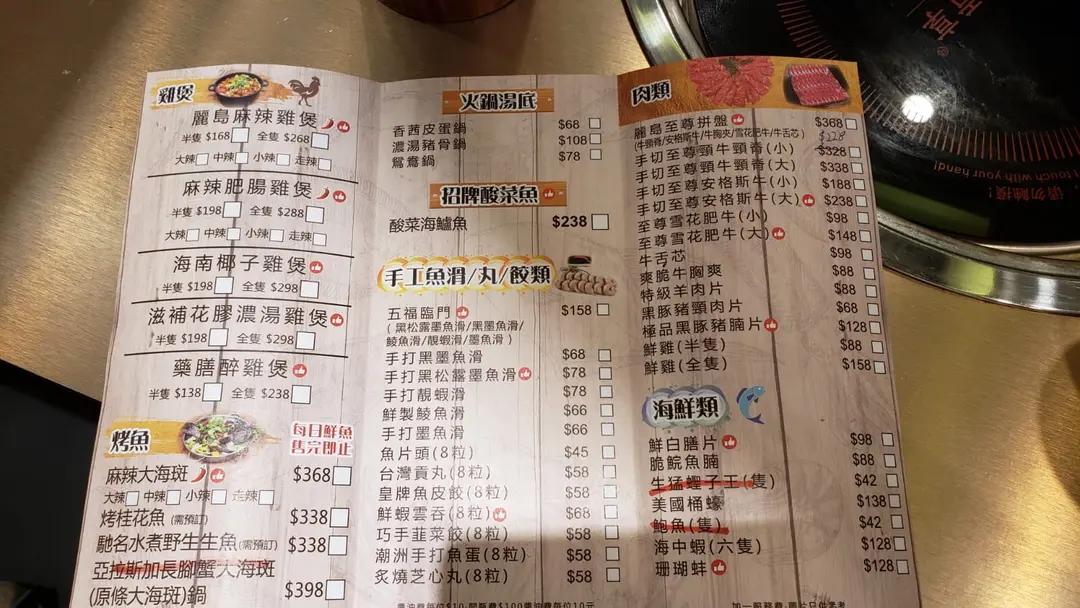 雞煲
麗島麻辣雞煲
半隻 $168 全隻 $268
大辣 中辣 小辣 走辣
麻辣肥腸雞煲
半隻 $198 全隻 $288
大辣 中辣 小辣 走辣
海南椰子雞煲
半隻 $198 全隻 $298
滋補花膠濃湯雞煲
半隻 $198 全隻 $298
藥膳醉雞煲
半隻 $138 全隻 $238
烤魚
每日鮮魚
售完即止
麻辣大海斑 $368
大辣 中辣 小辣 走辣
烤桂花魚(需預訂) $338
馳名水煮野生生魚(需預訂) $338
亞拉斯加長腳蟹大海斑
(原條大海斑)鍋 $398
火鍋湯底
香茜皮蛋鍋 $68
濃湯豬骨鍋 $108
鴛鴦鍋 $78
招牌酸菜魚
酸菜海鱸魚 $238
手工魚滑/丸/餃類
五福臨門 $158
(黑松露墨魚滑/黑墨魚滑/
鯪魚滑/靚蝦滑/墨魚滑)
手打黑墨魚滑 $68
手打黑松露墨魚滑 $78
手打靚蝦滑 $78
鮮製鯪魚滑 $66
手打墨魚滑 $66
魚片頭(8粒) $45
台灣貢丸(8粒) $58
皇牌魚皮餃(8粒) $58
鮮蝦雲吞(8粒) $68
巧手韮菜餃(8粒) $58
潮洲手打魚蛋(8粒) $58
炙燒芝心丸(8粒) $58
肉類
麗島至尊拼盤 $368
(牛頸脊/安格斯牛/牛胸夾/雪花肥牛/牛舌芯) $328
手切至尊頸牛頸脊(小) $328
手切至尊頸牛頸脊(大) $338
手切至尊安格斯牛(小) $188
手切至尊安格斯牛(大) $238
至尊雪花肥牛(小) $98
至尊雪花肥牛(大) $148
牛舌芯 $98
爽脆牛胸爽 $88
特級羊肉片 $88
黑豚豬頸肉片 $68
極品黑豚豬腩片 $128
鮮雞(半隻) $88
鮮雞(全隻) $158
海鮮類
鮮白膳片 $98
脆鯇魚腩 $88
生猛蟶子王(隻) $42
美國桶蠔 $138
鮑魚(隻) $42
海中蝦(六隻) $128
珊瑚蚌 $128
加一服務費·圖片只作參考
touch with your hand!
请勿触摸!